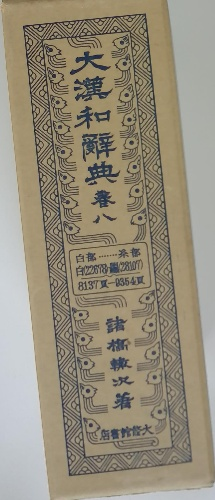 大漢和辭典
卷八
白部……糸部
白(22678)-𦇒(28107)
8137頁—9354頁
諸橋轍次著
大修館書店